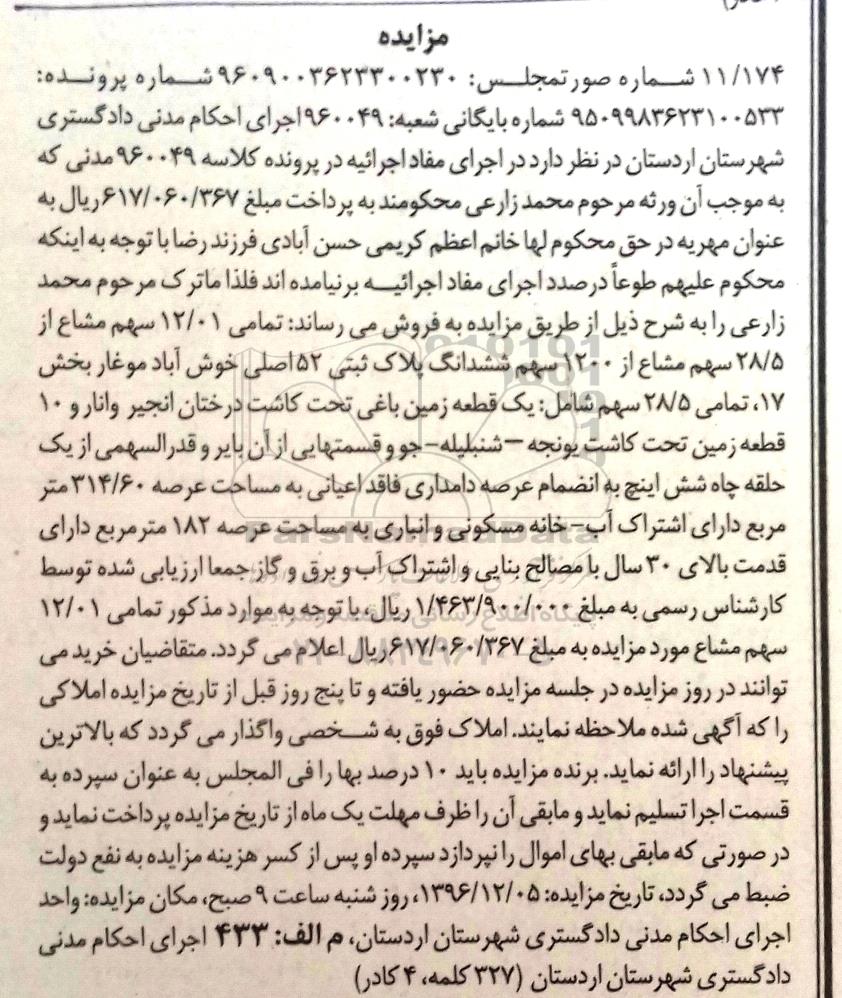 مزایده
۱۱/۱۷۴ شماره صورتمجلس: ۹۶۰۹۰۰۳۶۲۳۳۰۰۲۳۰ شماره پرونده:
۹۵۰۹۹۸۳۶۲۳۱۰۰۵۳۳ شماره بایگانی شعبه: ۹۶۰۰۴۹ اجرای احکام مدنی دادگستری
شهرستان اردستان در نظر دارد در اجرای مفاد اجرائیه در پرونده کلاسه ۹۶۰۰۴۹ مدنی که
به موجب آن ورثه مرحوم محمد زارعی محکومند به پرداخت مبلغ ۶۱۷/۰۶۰/۳۶۷ ریال به
عنوان مهریه در حق محکوم لها خانم اعظم کریمی حسن آبادی فرزند رضا با توجه به اینکه
محکوم علیهم طوعاً درصدد اجرای مفاد اجرائیه برنیامده اند فلذا ماترک مرحوم محمد
زارعی را به شرح ذیل از طریق مزایده به فروش می رساند: تمامی ۱۲/۰۱ سهم مشاع از
۲۸/۵ سهم مشاع از ۱۲۰۰ سهم ششدانگ پلاک ثبتی ۵۲ اصلی خوش آباد موغار بخش
۱۷، تمامی ۲۸/۵ سهم شامل: یک قطعه زمین باغی تحت کاشت درختان انجیر وانار و ۱۰
قطعه زمین تحت کاشت یونجه – شنبلیله - جو و قسمتهایی از آن بایر و قدرالسهمی از یک
حلقه چاه شش اینچ به انضمام عرصه دامداری فاقد اعیانی به مساحت عرصه ۳۱۴/۶۰ متر
مربع دارای اشتراک آب - خانه مسکونی و انباری به مساحت عرصه ۱۸۲ مترمربع دارای
قدمت بالای ۳۰ سال با مصالح بنایی و اشتراک آب و برق و گاز جمعا ارزیابی شده توسط
کارشناس رسمی به مبلغ ۱/۴۶۳/۹۰۰/۰۰۰ ریال، با توجه به موارد مذکور تمامی ۱۲/۰۱
سهم مشاع مورد مزایده به مبلغ ۶۱۷/۰۶۰/۳۶۷ ریال اعلام می گردد. متقاضیان خرید می
توانند در روز مزایده در جلسه مزایده حضور یافته و تا پنج روز قبل از تاریخ مزایده املاکی
را که آگهی شده ملاحظه نمایند. املاک فوق به شخصی واگذار می گردد که بالاترین
پیشنهاد را ارائه نماید. برنده مزایده باید ۱۰ درصد بها را فی المجلس به عنوان سپرده به
قسمت اجرا تسلیم نماید و مابقی آن را ظرف مهلت یک ماه از تاریخ مزایده پرداخت نماید و
در صورتی که مابقی بهای اموال را نپردازد سپرده او پس از کسر هزینه مزایده به نفع دولت
ضبط می گردد، تاریخ مزایده: ۱۳۹۶/۱۲/۰۵، روز شنبه ساعت ۹ صبح، مکان مزایده: واحد
اجرای احکام مدنی دادگستری شهرستان اردستان، م الف: ۴۳۳ اجرای احکام مدنی
دادگستری شهرستان اردستان (۳۲۷ کلمه، ۴ کادر)